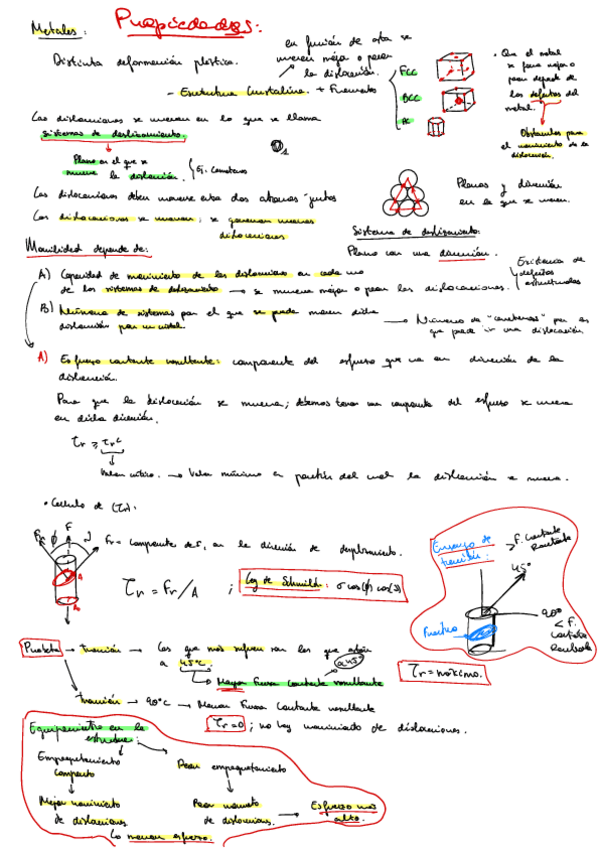 Metales: Propiedades:
Distinta deformación plástica.
en función de esta se
mueven mejor o peor
la dislocación.
- Estructura Cristalina. +
FCC
BCC
HC
• Que el metal
se mejor o
peor depende de
los defectos del
metal.
Obstáculos para
el movimiento de la
dislocación.
Las dislocaciones se mueven en lo que se llama
sistemas de deslizamiento.
Plano en el que se
mueve la dislocación.
Ej. Carreteras
Las dislocaciones deben moverse entre dos átomos juntos
Las dislocaciones se mueven; se generan nuevas
dislocaciones
Planos y dirección
en la que se mueven.
Sistema de deslizamiento:
Plano con una dirección.
Movilidad depende de:
A) Capacidad de movimiento de las dislocaciones en cada uno
de los sistemas de deslizamiento → se mueven mejor o peor las dislocaciones.
Existencia de
defectos
estructurales
B) Número de sistemas por el que se puede mover dicha
dislocación por un metal
→ Número de "carreteras" por las
que puede ir una dislocación.
A) Esfuerzo cortante resultante: componente del esfuerzo que va en dirección de la
dislocación.
Para que la dislocación se mueva; debemos tener una componente del esfuerzo se mueva
en dicha dirección.
τr ≥ τrc
Valor crítico. → Valor mínimo a partir del cual la dislocación se mueve.
• Cálculo de (τr).
F
Fr
Fr = componente de F, en la dirección de desplazamiento.
A
A₀
τr = Fr/A ; Ley de Schmild: σ cos(ϕ) cos(λ)
Ensayo de
tracción:
> F. Cortante
Resultante
45°
90°
< F.
Cortante
Resultante
Probeta → Tracción → Las que más sufren son las que están
a 45°C
(a 45°)
→ Mayor Fuerza Cortante resultante
τr = máximo.
tracción → 90°C → Menor Fuerza Cortante resultante
τr = 0; no hay movimiento de dislocaciones.
Empaquetamiento en la
estructura:
Empaquetamiento
compacto
Peor empaquetamiento
Mejor movimiento
de dislocaciones
Peor
de dislocaciones. → Esfuerzo más
alto.
Lo menor esfuerzo.